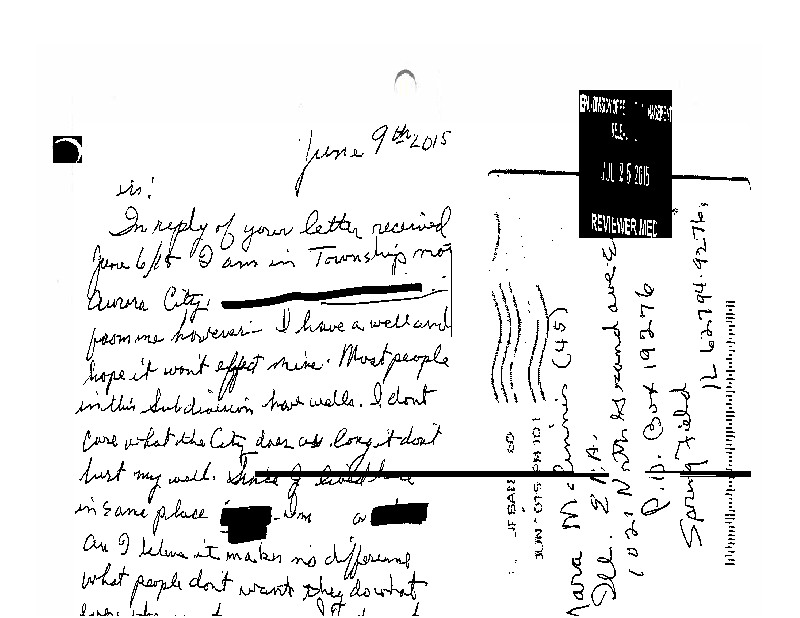 June 9th 2015
In reply of your letter received
June 6/15 I am in Township not
Aurora City.
from me however - I have a well and
hope it won't effect mine. Most people
in this Subdivision have wells. I dont
care what the City does as long it dont
hurt my well. Since I lived here
in same place
as I believe it makes no difference
what people don't want they do what
JUL 25 2015
REVIEWER MED
Mara McGinnis (45)
Ill. E.P.A.
1021 North Grand ave. E
P.O. Box 19276
Spring Field
IL 62794-9276